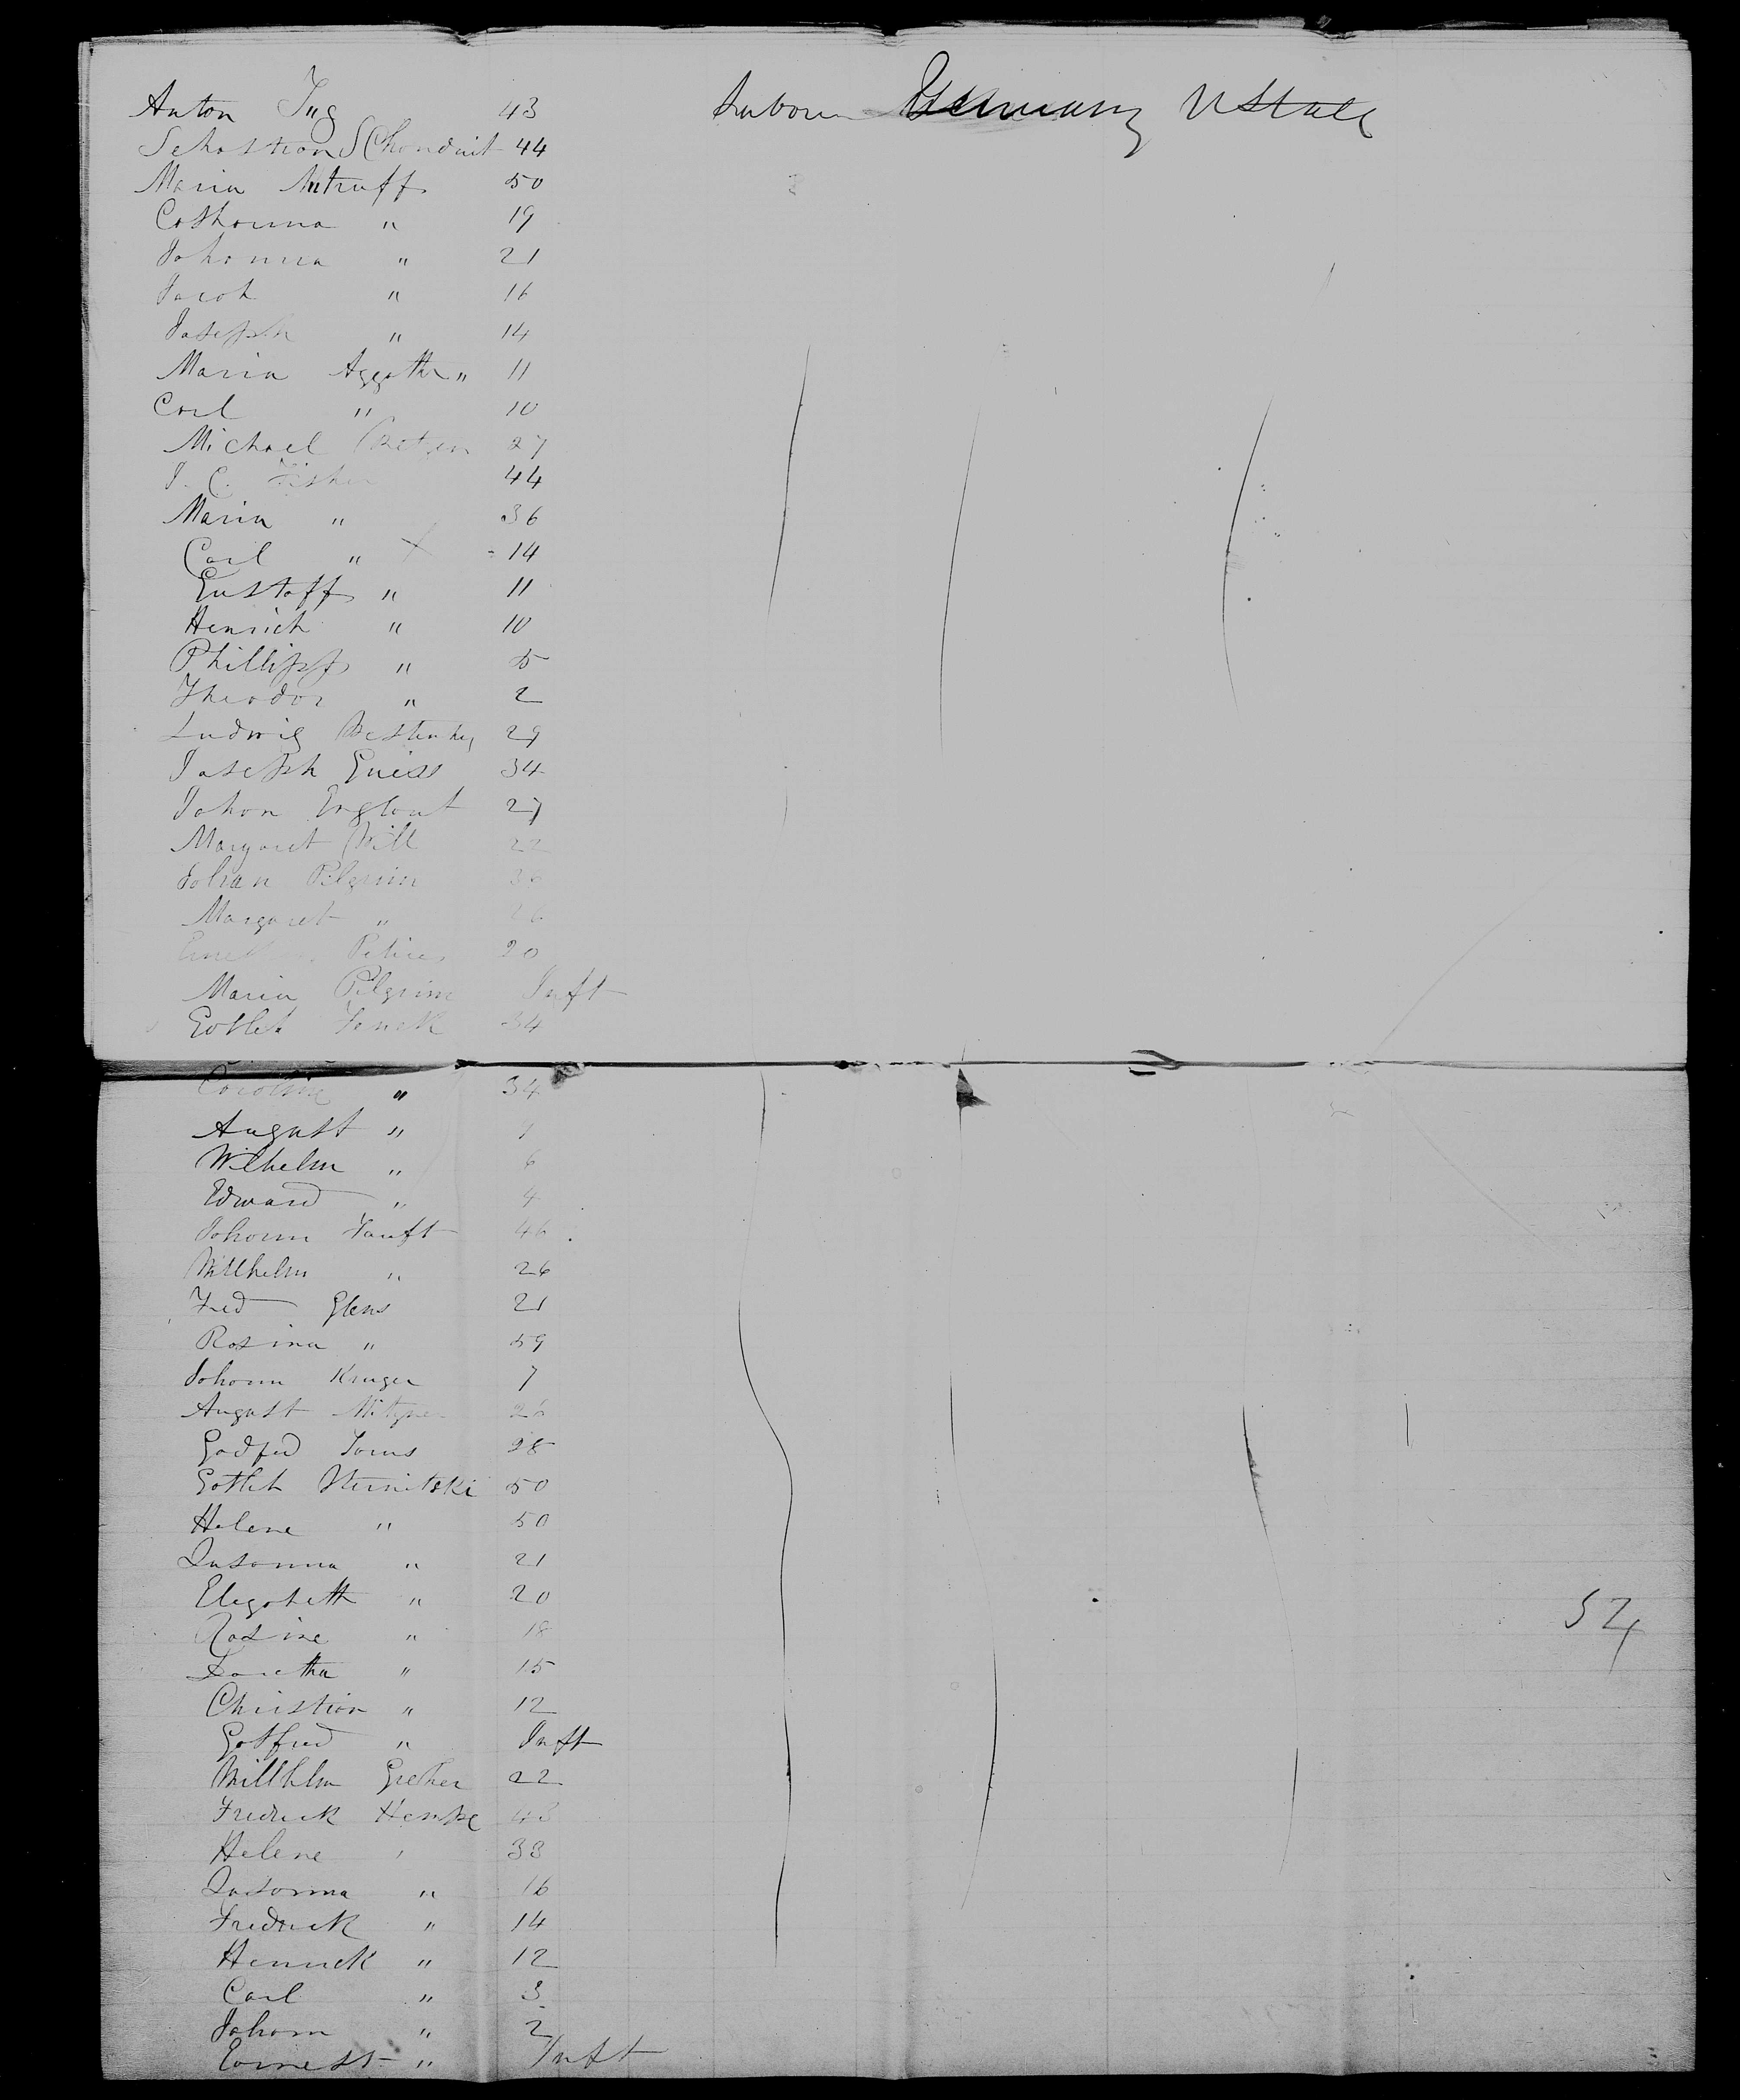 Anton Jug 43 Labour Germany U State
Sebastian 44
Maria Antruff 50
Cathorina " 19
Johonna " 21
Jacob " 16
Joseph " 14
Maria Aggatha " 11
Carl " 10
Michael 27
J. C. Fisher 44
Maria " 36
Carl " 14
Gustaff " 11
Henrich " 10
Phillipp " 5
Theodor " 2
Ludwig 29
Joseph Gneiss 34
Johan Englout 27
Margaret Will 22
Johan Pilgrim 36
Margaret " 26
20
Maria Pilgrim Inft
Gotleb Fenck 34
Caroline " 34
August "
Wilhelm " 6
Edward " 4
Johonn Fauft 46
Willhelm " 26
Fred Glens 21
Rosina " 59
Johonn Kruger 7
August 26
Godfred 28
Gotleb Sternitski 50
Helene " 50
Susonna " 21
Elezobeth " 20
Rosine " 18
Doretha " 15
Christian " 12
Gotfred " Inft
Willhlm Grether 22
Fredrick Hempe 43
Helene " 33
Susonna " 16
Fredrick " 14
Henrick " 12
Carl " 3
Johonn " 2
Ernest " Inft